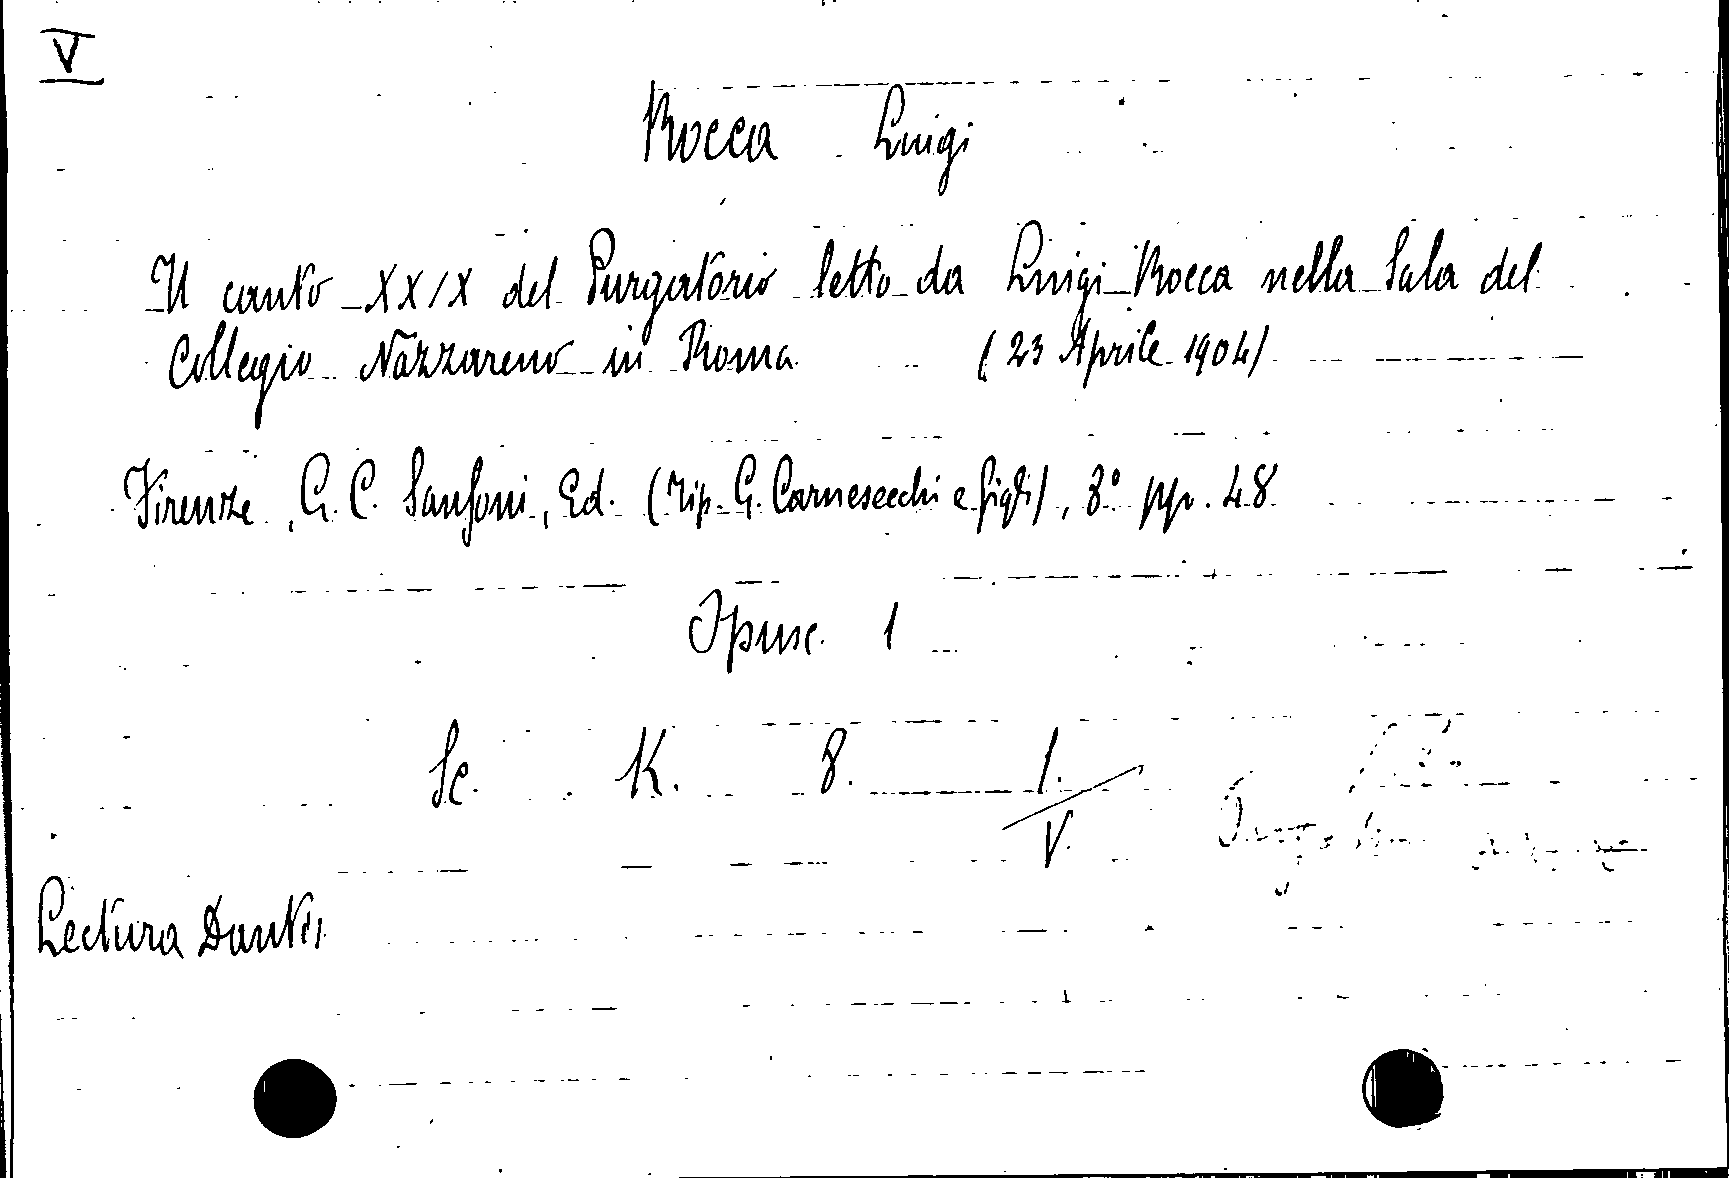 V
Rocca Luigi
Il canto XXIX del Purgatorio letto da Luigi Rocca nella Sala del
Collegio Nazzareno in Roma (23 Aprile 1904)
Firenze, G. C. Sansoni, Ed. (Tip. G. Carnesecchi e figli), 8° pp. 48
Opusc. 1
Sc. K. 8. 1.
V.
Lectura Dantis